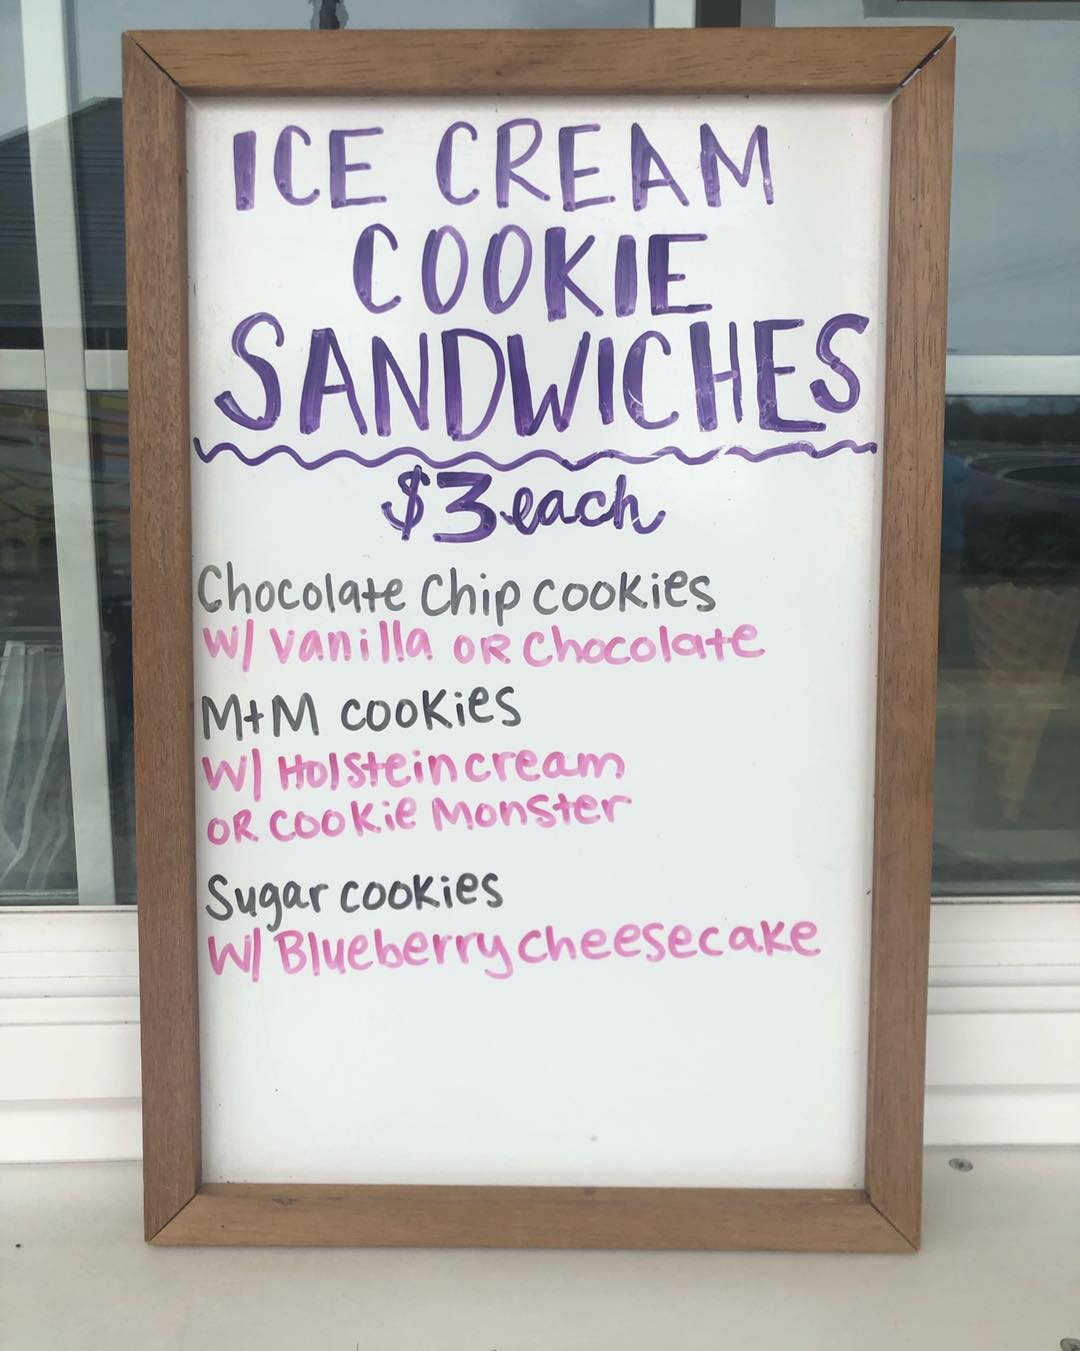 ICE CREAM
COOKIE
SANDWICHES
$3 each
Chocolate Chip cookies
W/ vanilla OR Chocolate
M+M cookies
W/ Holstein cream
OR cookie Monster
Sugar cookies
W/ Blueberry cheesecake